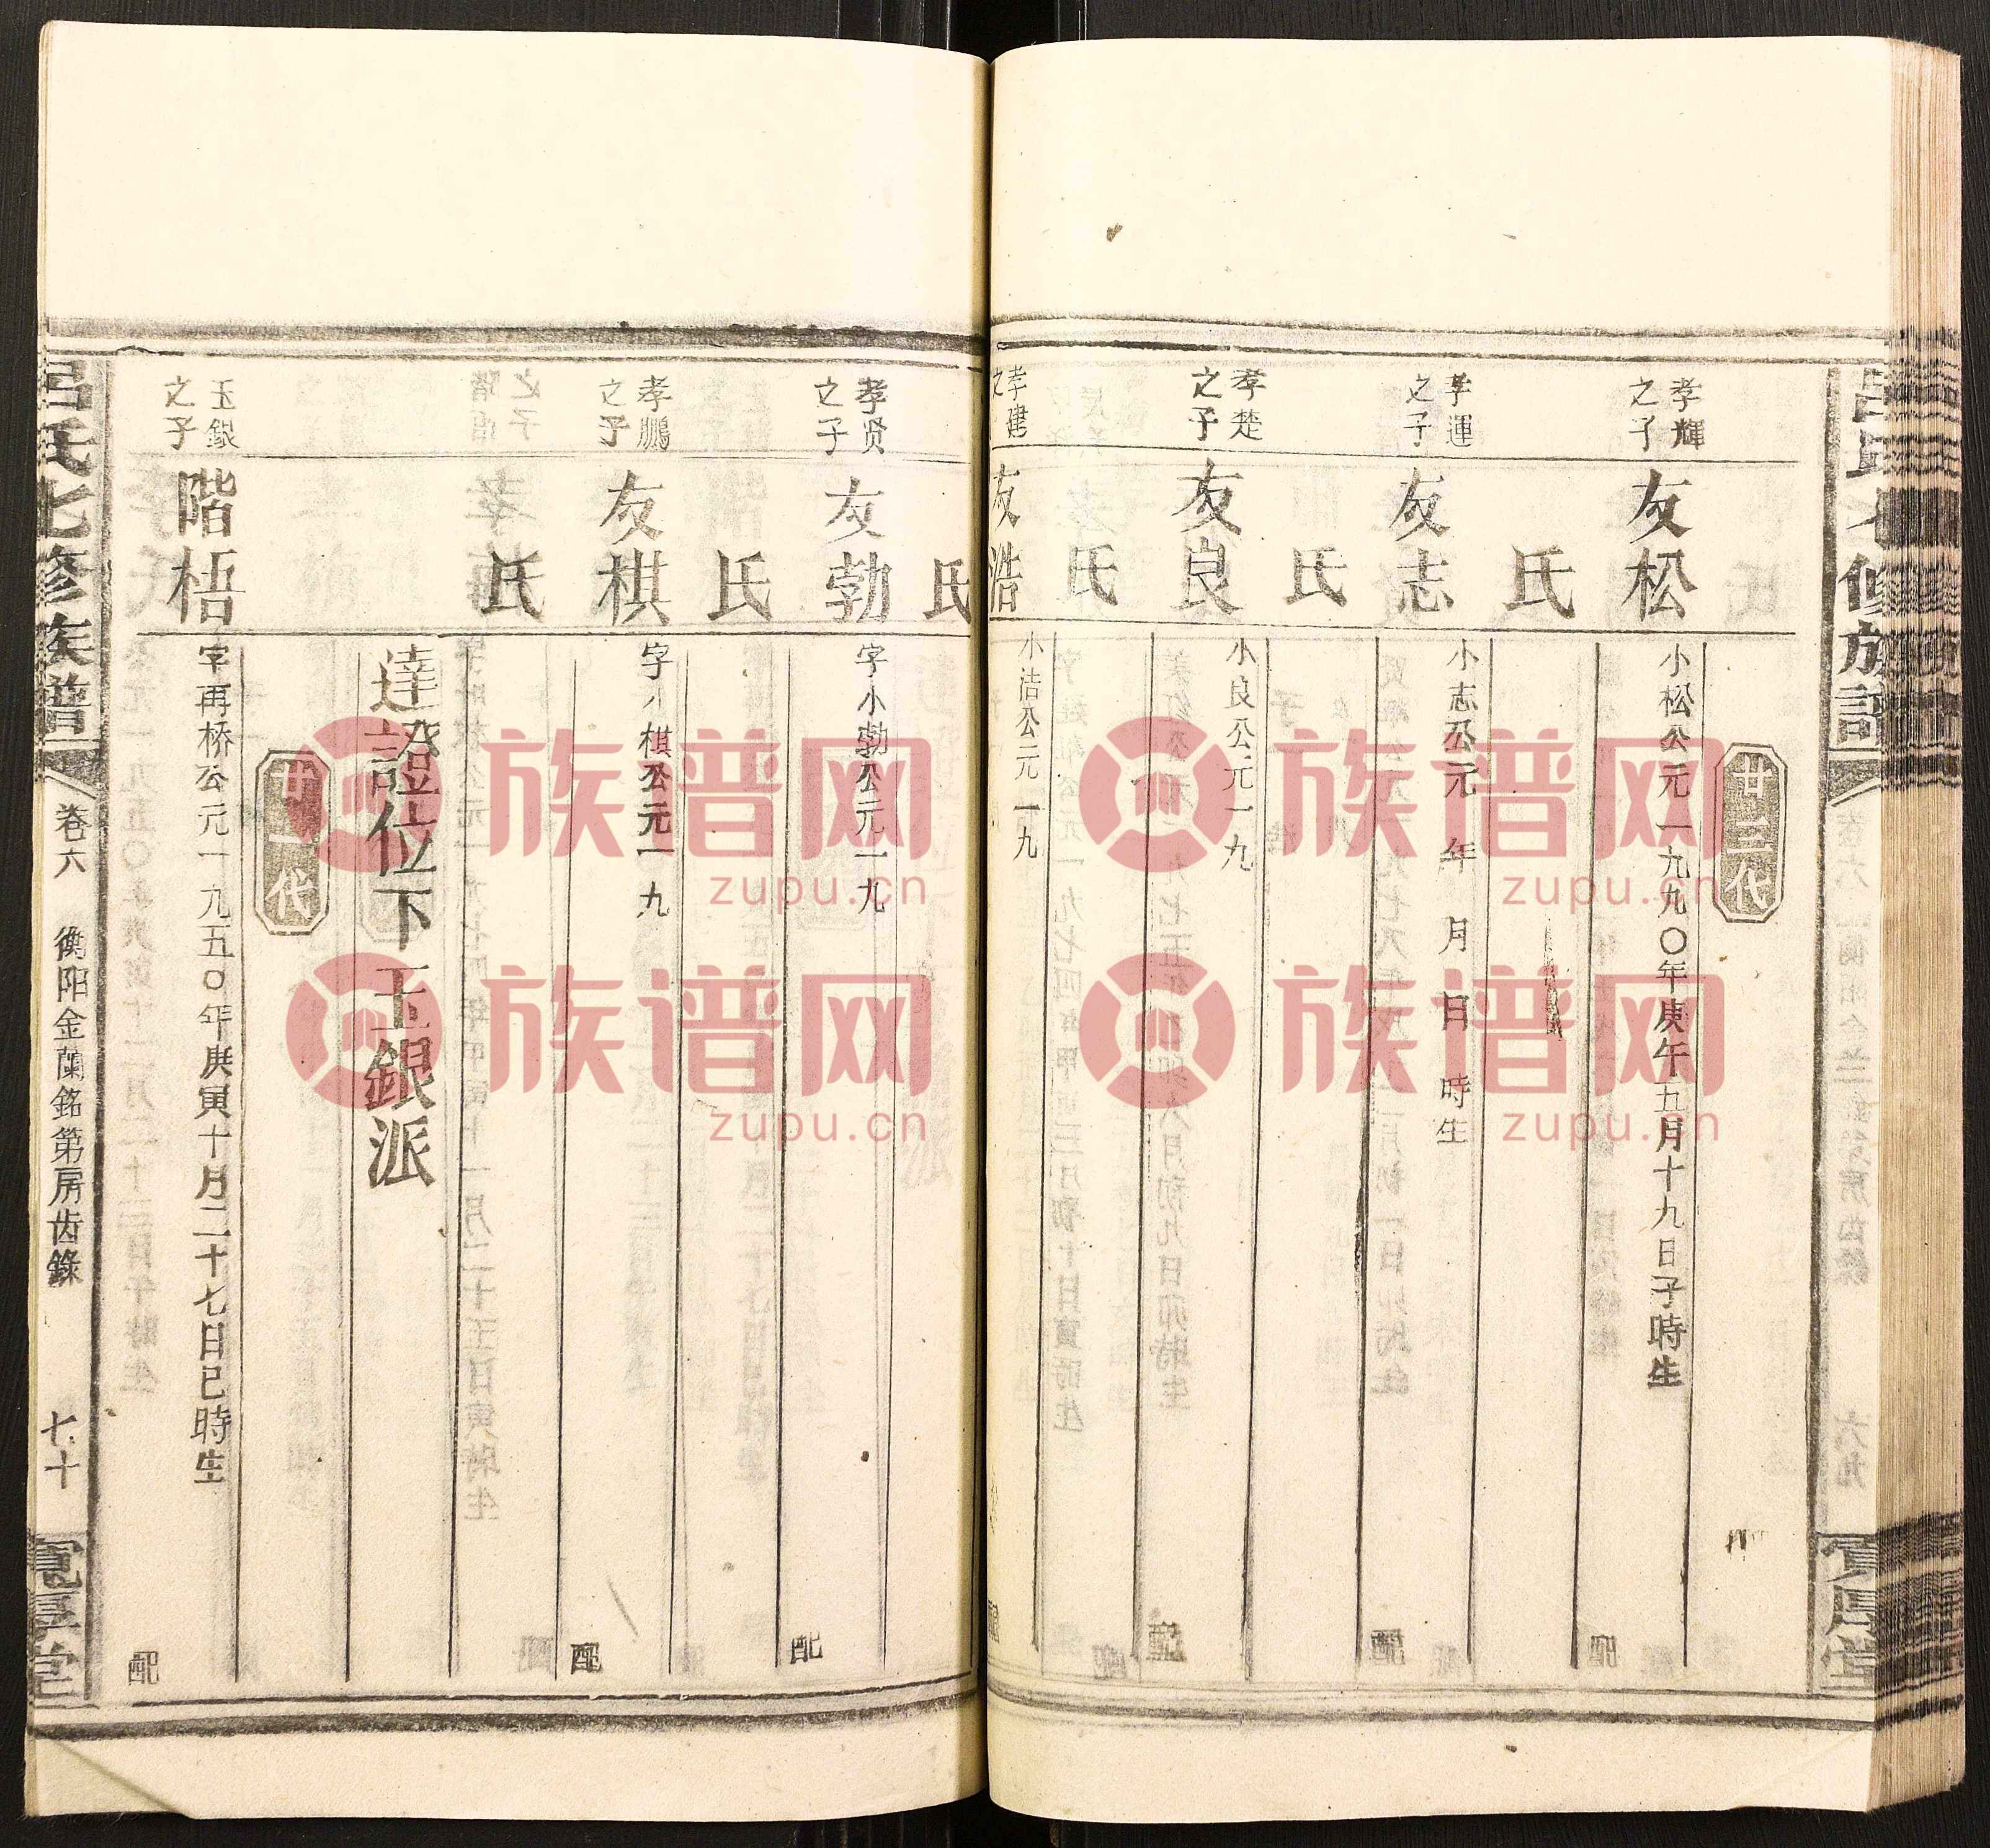 廿三代
孝輝
之子
友松
小松公元一九九〇年庚午五月十九日子時生
配
氏
孝運
之子
友志
小志公元 年 月 日 時生
配
氏
孝楚
之子
友良
小良公元一九
配
氏
孝建
之
友浩
小洁公元一九
配
氏
孝贤
之子
友勃
字小勃公元一九
配
氏
孝鵬
之子
友棋
字小棋公元一九
配
氏
達證位下玉銀派
廿一代
玉銀
之子
階梧
字再桥公元一九五〇年庚寅十月二十七日巳時生
配
吕氏七修族譜
卷六
衡阳金蘭銘第房齿錄
七十
寬厚堂
族谱网
zupu.cn
族谱网
zupu.cn
族谱网
zupu.cn
族谱网
zupu.cn